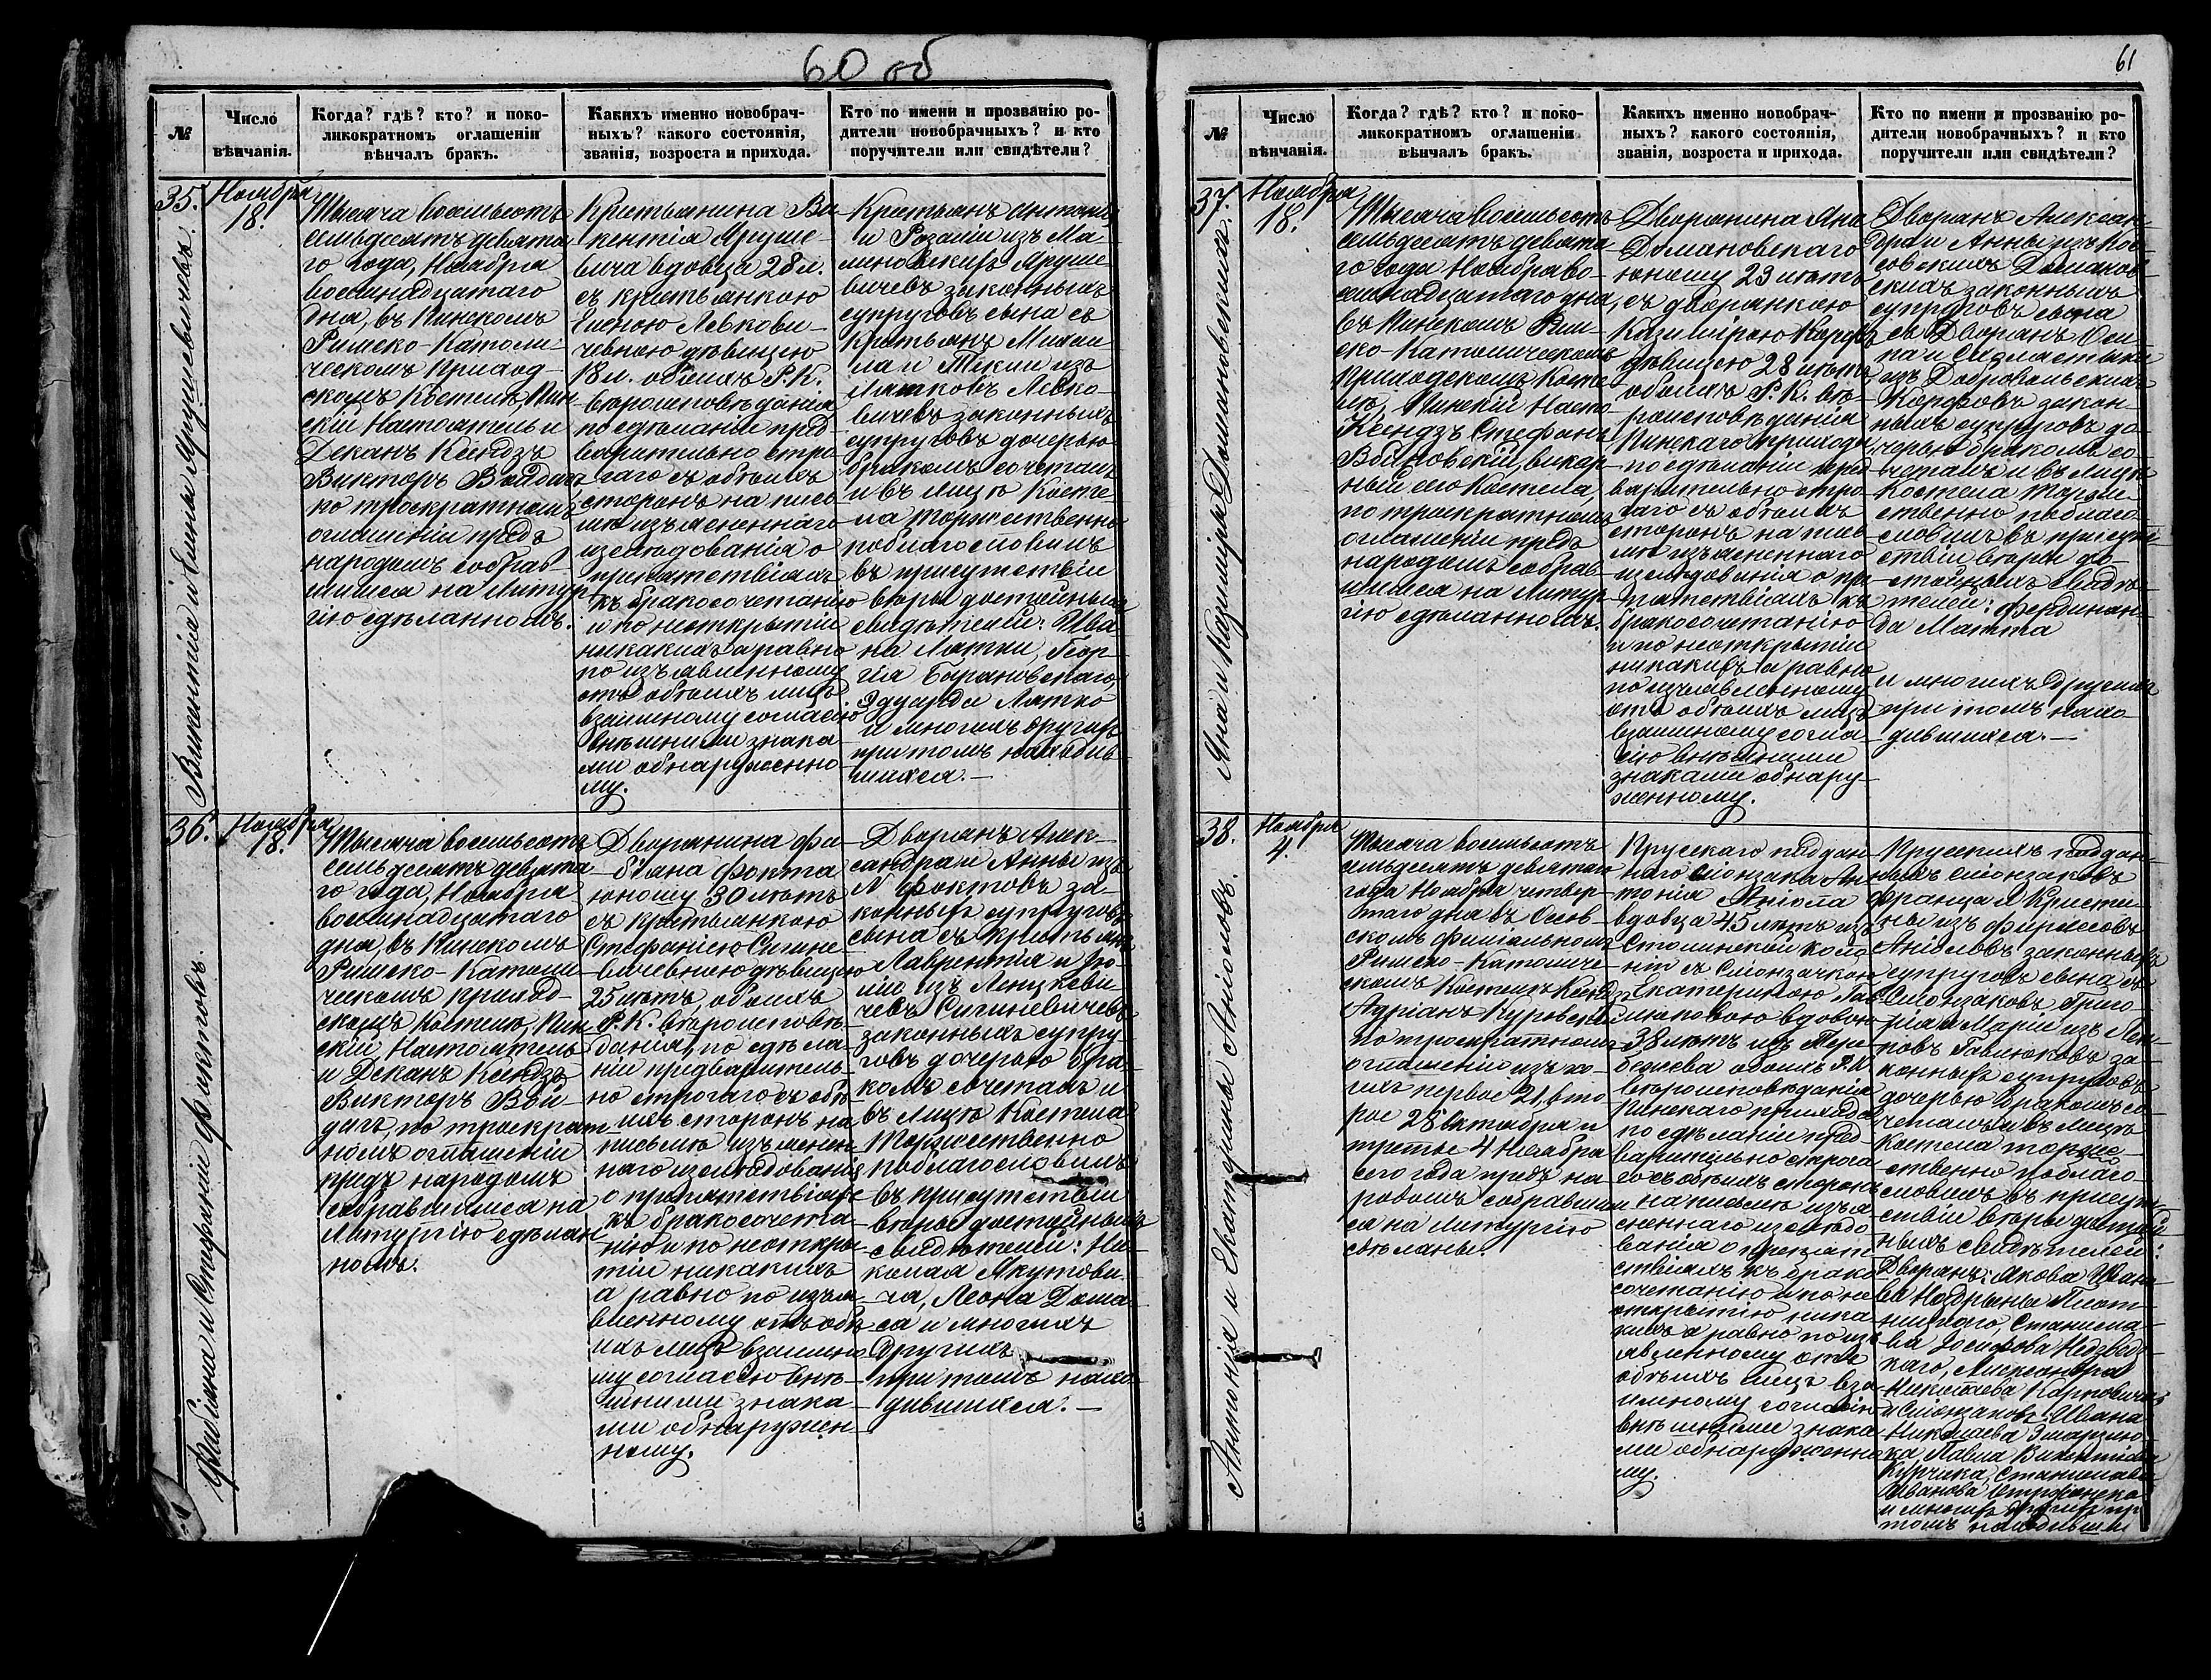 60 об
№
Число
вѣнчанія.
Когда? гдѣ? кто? и поко-
ликократномъ оглашеніи
вѣнчалъ бракъ.
Какихъ именно новобрач-
ныхъ? какого состоянія,
званія, возроста и прихода.
Кто по имени и прозванію ро-
дители новобрачныхъ? и кто
поручители или свидѣтели?
35.
Ноября
18.
Викентія и Елены Ярушевичевъ.
Тысяча восемьсотъ
семьдесятъ девята-
го года, Ноября
восемнадцатаго
дня, въ Пинскомъ
Римско-Католи-
ческомъ Приход-
скомъ Костелѣ, Пин-
скій Настоятель и
Деканъ Ксендзъ
Викторъ
по троекратномъ
оглашеніи предъ
народомъ собрав-
шимся на Литур-
гію сдѣланномъ.
Крестьянина Ви-
кентія Яруше-
вича вдовца 28 л.
съ крестьянкою
Еленою Левкови-
чевною дѣвицею
18 л. обоихъ Р. К.
вѣроисповѣданія
по сдѣланіи пред-
варительно стро-
гаго съ обѣихъ
сторонъ на пись-
мѣ изъясненнаго
изслѣдованія о
препятствіяхъ
къ бракосочетанію
и по неоткрытіи
никакихъ а равно
по изъявленному
отъ обѣихъ лицъ
взаимному согласію
внѣшними знака-
ми обнаруженно-
му.
Крестьянъ Антона
и Розаліи изъ Ма-
линовскихъ Яруше-
вичевъ законныхъ
супруговъ сына съ
Крестьянъ Михаи-
ла и Теклии изъ
Лятковъ Левко-
вичевъ законныхъ
супруговъ дочерью
бракомъ сочеталъ
и въ лицѣ Косте-
ла торжественно
поблагословилъ
въ присутствіи
вѣры достойныхъ
свидѣтелей: Ива-
на Лятки, Геор-
гія Барановскаго,
Эдуарда Лятко
и многихъ другихъ
при томъ находив-
шихся.—
36.
Ноября
18.
Фабіана и Стефаніи Фоктовъ.
Тысяча восемьсотъ
семьдесятъ девята-
го года, Ноября
восемнадцатаго
дня, въ Пинскомъ
Римско-Католи-
ческомъ приход-
скомъ Костелѣ, Пин-
скій Настоятель
и Деканъ Ксендзъ
Викторъ
по троекрат-
номъ оглашеніи
предъ народомъ
собравшимся на
Литургію сдѣлан-
номъ.
Дворянина Фа-
біана Фокта
юношу 30 лѣтъ
съ крестьянкою
Стефаніею Сигине-
вичевною дѣвицею
25 лѣтъ, обоихъ
Р. К. вѣроисповѣ-
данія, по сдѣла-
ніи предваритель-
но строгаго съ обѣ-
ихъ сторонъ на
письмѣ изъяснен-
наго изслѣдованія
о препятствіяхъ
къ бракосочета-
нію и по неоткры-
тіи никакихъ
а равно по изъя-
вленному отъ обѣ-
ихъ лицъ взаимно-
му согласію внѣ-
шними знака-
ми обнаружен-
ному.
Дворянъ Алек-
сандра и Анны изъ
N Фоктовъ за-
конныхъ супруговъ
сына съ крестьянъ
Лаврентія и
изъ
чевъ Сигиневичевъ
законныхъ супру-
говъ дочерью бра-
комъ сочеталъ и
въ лицѣ Костела
торжественно
поблагословилъ
въ присутствіи
вѣры достойныхъ
свидѣтелей: Ни-
колая Якутови-
ча, Леона Дома-
са и многихъ
другихъ
при томъ нахо-
дившихся.—
61
№
Число
вѣнчанія.
Когда? гдѣ? кто? и поко-
ликократномъ оглашеніи
вѣнчалъ бракъ.
Какихъ именно новобрач-
ныхъ? какого состоянія,
званія, возроста и прихода.
Кто по имени и прозванію ро-
дители новобрачныхъ? и кто
поручители или свидѣтели?
37.
Ноября
18.
Яна и Казиміры Домановскихъ.
Тысяча восемьсотъ
семьдесятъ девята-
го года Ноября во-
семнадцатаго дня,
въ Пинскомъ Рим-
ско-Католическомъ
Приходскомъ Косте-
лѣ, Пинскій Насто-
Ксендзъ Стефанъ
викар-
ный сего Костела,
по троекратномъ
оглашеніи предъ
народомъ собрав-
шимся на Литур-
гію сдѣланномъ.
Дворянина Яна
Домановскаго
юношу 23 лѣтъ
съ дворянкою
Казимірою Корфъ
дѣвицею 28 лѣтъ,
обоихъ Р. К. вѣ-
роисповѣданія
Пинскаго прихода
по сдѣланіи пред-
варительно стро-
гаго съ обѣихъ
сторонъ на пись-
мѣ изъясненнаго
изслѣдованія о пре-
пятствіяхъ къ
бракосочетанію
и по неоткрытію
никакихъ а равно
по изъявленному
отъ обѣихъ лицъ
взаимному согла-
сію внѣшними
знаками обнару-
женному.
Дворянъ Алексан-
дра и Анны изъ Кос-
совскихъ Доманов-
скихъ законныхъ
супруговъ сына
съ Дворянъ Оси-
па и Схоластыки
изъ Добровольскихъ
Корфовъ закон-
ныхъ супруговъ до-
черью бракомъ со-
четалъ и въ лицѣ
Костела торже-
ственно поблаго-
словилъ въ присут-
ствіи вѣры до-
стойныхъ свидѣ-
телей: Фердинан-
да Матта
и многихъ другихъ
при томъ нахо-
дившихся.—
38.
Ноября
4.
Антонія и Екатерины Аніоловъ.
Тысяча восемьсотъ
семьдесятъ девятаго
года Ноября четвер-
таго дня въ
скомъ филіальномъ
Римско-Католиче-
скомъ Костелѣ Ксендзъ
Адріанъ Куровскій
по троекратномъ
оглашеніи изъ ко-
ихъ первое 21, вто-
рое 28 Октября и
третье 4 Ноября
сего года предъ на-
родомъ собравшим-
ся на литургію
сдѣланы.
Прусскаго поддан-
наго Слонзака Ан-
тонія Аніола
вдовца 45 лѣтъ изъ
Столинской коло-
ніи съ Слонзачкою
Екатериною Гав-
люковою вдовою
38 лѣтъ изъ Тере-
бежева обоихъ Р. К.
вѣроисповѣданія
Пинскаго прихода
по сдѣланіи пред-
варительно строга-
го съ обѣихъ сторонъ
на письмѣ изъя-
сненнаго изслѣдо-
ванія о препят-
ствіяхъ къ брако-
сочетанію и по не-
открытію ника-
кихъ а равно по изъ-
явленному отъ
обѣихъ лицъ вза-
имному согласію
внѣшними знака-
ми обнаруженно-
му.
Прусскихъ поддан-
ныхъ Слонзаковъ
Франца и Кристи-
ны изъ
Аніоловъ законныхъ
супруговъ сына съ
Слонзаковъ Григо-
рія и Маріи изъ
Гавлюковъ за-
конныхъ супруговъ
дочерью бракомъ со-
четалъ и въ лицѣ
Костела торже-
ственно поблаго-
словилъ въ присут-
ствіи вѣры достой-
ныхъ свидѣтелей:
Дворянъ: Якова Ивано-
ва
Станисла-
ва Іосифова
Александра
Николаева Карповича
и Слонзаковъ: Ивана
Николаева
Павла Викентіева
Курчика, Станислава
Иванова
и многихъ другихъ при
томъ находивших